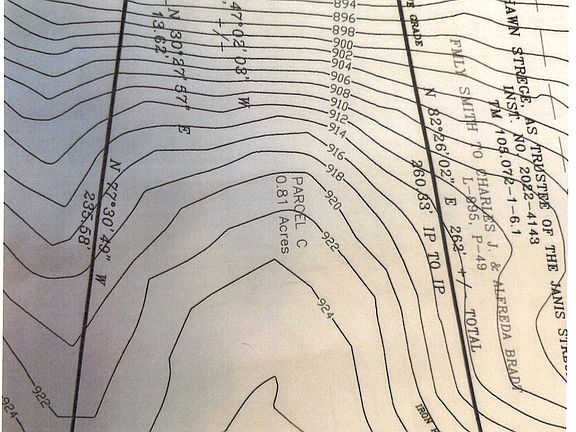 HAWN STREGE, AS TRUSTEE OF THE JANIS
INST. NO. 2022-4143
TM 105.072-1-6.1
FMLY SMITH TO CHARLES J. & ALFREDA BRADT
L-895, P-49
N 82°26'02" E 262' +/- TOTAL
260.83' IP TO IP
GRADE
IRON
PARCEL C
0.81 Acres
47°02'03" W
+/-
N 30°27'57" E
13.62'
N 77°30'49" W
235.58'
894
896
898
900
902
904
906
908
910
912
914
916
918
920
922
924
922
924